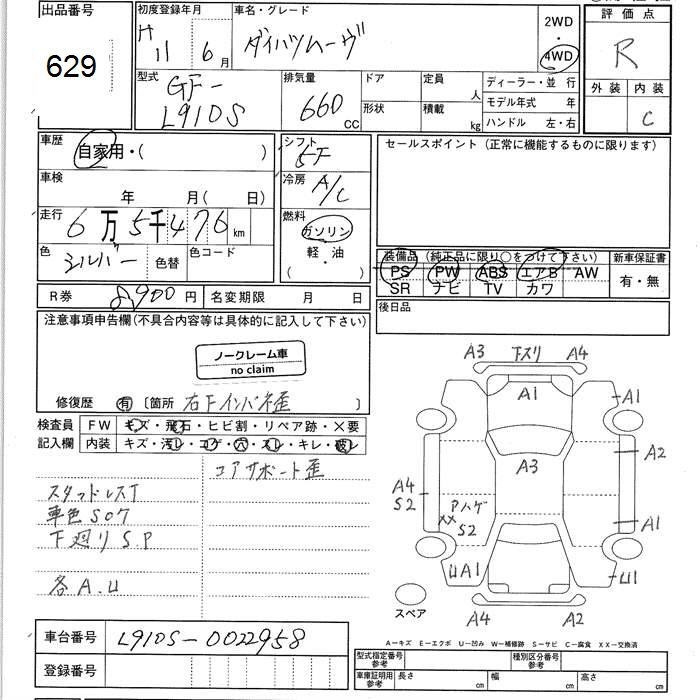 出品番号
629
初度登録年月
H 11 年 6 月
車名・グレード
ダイハツムーヴ
2WD
・
4WD
評価点
R
外装 内装
C
型式
GF-
L910S
排気量
660
CC
ドア
形状
定員
人
積載
kg
ディーラー・並 行
モデル年式 年
ハンドル 左・右
車歴
自家用・( )
シフト
5F
セールスポイント (正常に機能するものに限ります)
車検
年 月( 日)
冷房
A/C
走行
6万5千476 km
燃料
ガソリン
軽・油
( )
色
シルバー
色替
色コード
装備品 (純正品に限り○をつけて下さい)
新車保証書
PS PW ABS エアB AW
SR ナビ TV カワ
有・無
R券
8,900円
名変期限 月 日
後日品
注意事項申告欄(不具合内容等は具体的に記入して下さい)
ノークレーム車
no claim
修復歴 有 〔箇所 右Fインパネ歪
検査員
記入欄
FW
キズ・飛石・ヒビ割・リペア跡・×要
内装
キズ・汚レ・コゲ・穴・スレ・キレ・破レ
コアサポート歪
スタッドレスT
車色S07
下廻りS.P
各A.U
A3 下スリ A4
A1
A1
A2
A3
A4
S2
Pハゲ
XX
S2
A1
UA1
U1
スペア
A4
A2
車台番号
L910S-0022958
登録番号
A－キズ E－エクボ U－凹み W－補修跡 S－サビ C－腐食 XX－交換済
型式指定番号
参考
種別区分番号
参考
車庫証明用
参考
長さ cm
幅 cm
高さ cm